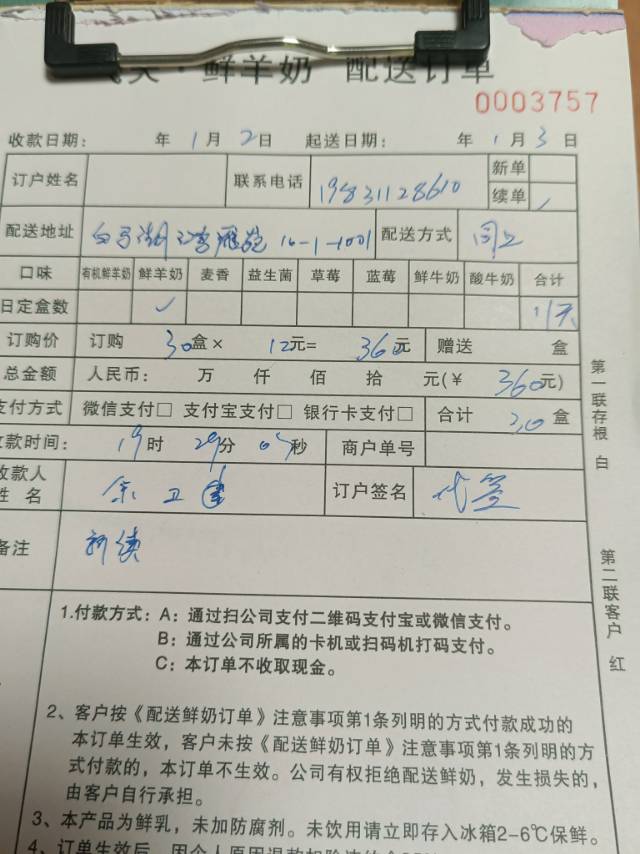 ·鲜羊奶 配送订单
0003757
收款日期: 年 1 月 2 日 起送日期: 年 1 月 3 日
订户姓名 联系电话 19831128610 新单
续单
配送地址 10-1-1001 配送方式 同上
口味 有机鲜羊奶 鲜羊奶 麦香 益生菌 草莓 蓝莓 鲜牛奶 酸牛奶 合计
日定盒数 ✓ 1/天
订购价 订购 30盒× 12元= 360元 赠送 盒
总金额 人民币: 万 仟 佰 拾 元(¥ 360元)
支付方式 微信支付□ 支付宝支付□ 银行卡支付□ 合计 30 盒
收款时间: 19时 29分 秒 商户单号
收款人
姓 名 余卫 订户签名 代签
备注 新续
第一联存根 白
第二联客户 红
1.付款方式: A: 通过扫公司支付二维码支付宝或微信支付。
B: 通过公司所属的卡机或扫码机打码支付。
C: 本订单不收取现金。
2、客户按《配送鲜奶订单》注意事项第1条列明的方式付款成功的
本订单生效,客户未按《配送鲜奶订单》注意事项第1条列明的方
式付款的,本订单不生效。公司有权拒绝配送鲜奶,发生损失的,
由客户自行承担。
3、本产品为鲜乳,未加防腐剂。未饮用请立即存入冰箱2-6℃保鲜。
4、订单生效后,因个人原因退款扣除